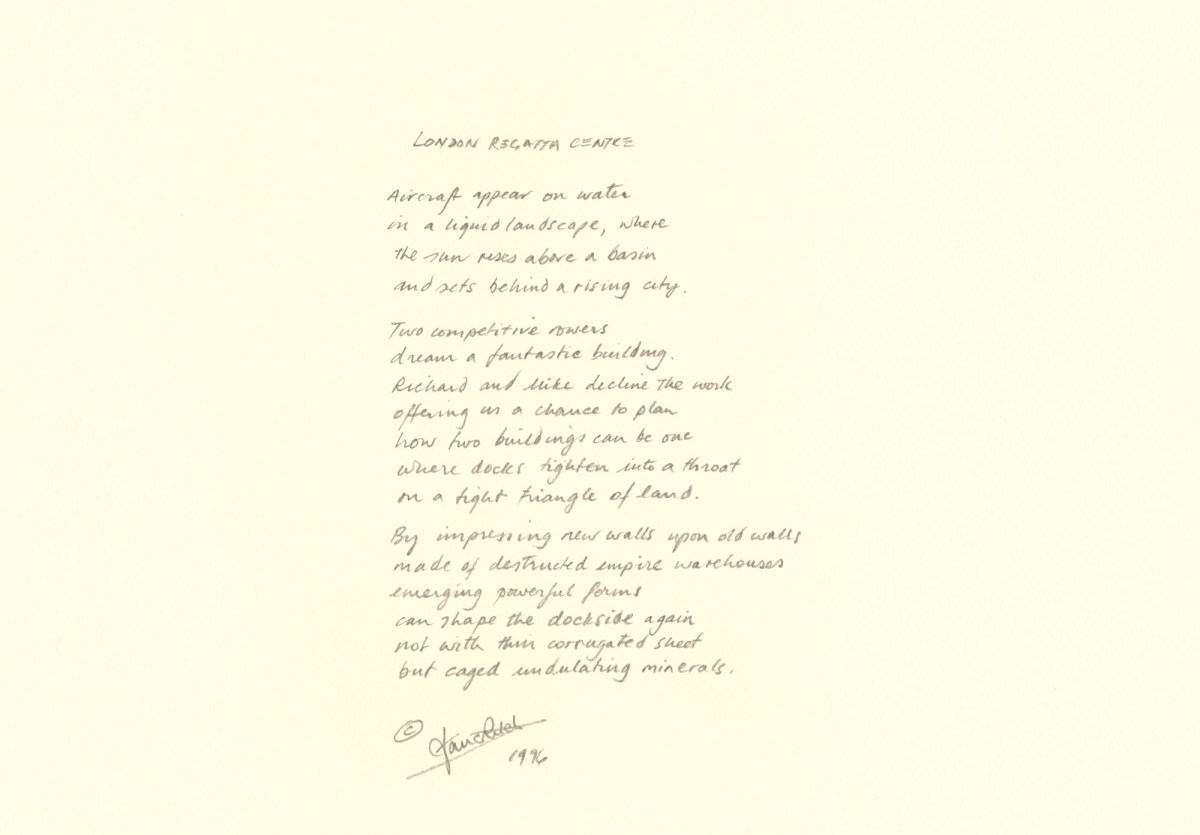 LONDON REGATTA CENTRE
Aircraft appear on water
in a liquid landscape, where
the sun rises above a basin
and sets behind a rising city.
Two competitive rowers
dream a fantastic building.
Richard and Mike decline the work
offering us a chance to plan
how two buildings can be one
where docks tighten into a throat
on a tight triangle of land.
By impressing new walls upon old walls
made of destructed empire warehouses
emerging powerful forms
can shape the dockside again
not with thin corrugated sheet
but caged undulating minerals.
©
1996